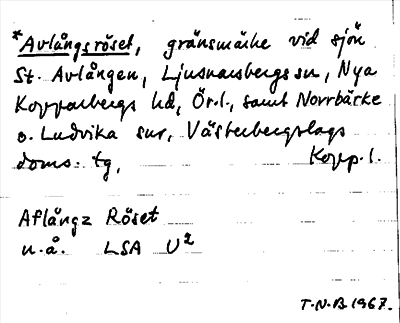 *Avlångsröset, gränsmärke vid sjön
St. Avlången, Ljusnarsbergs sn, Nya
Kopparbergs hd, Ör.l., samt Norrbärke
o. Ludvika snr, Västerbergslags
doms. tg, Kopp. l.
Aflångz Röset
n.å. LSA U²
T.N.B 1967.